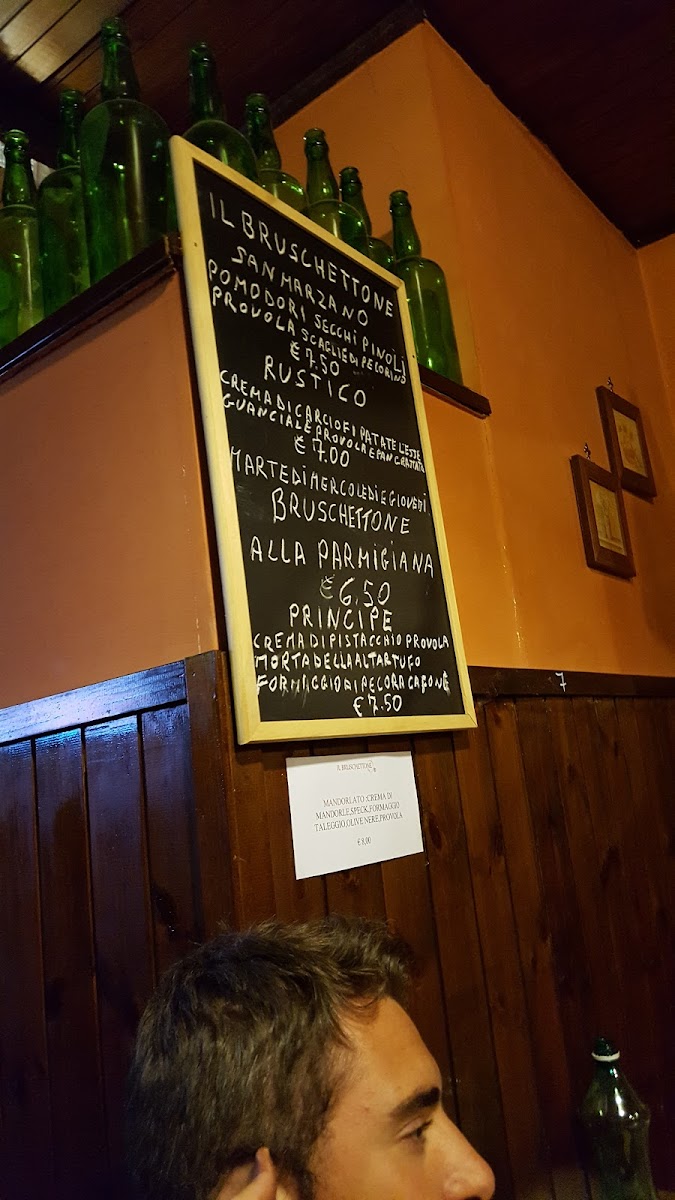 IL BRUSCHETTONE
SAN MARZANO
POMODORI SECCHI PINOLI
PROVOLA SCAGLIE DI PECORINO
€ 7.50
RUSTICO
CREMA DI CARCIOFI PATATE LESSE
GUANCIALE PROVOLA E PAN GRATTATO
€ 7.00
MARTEDI MERCOLEDI E GIOVEDI
BRUSCHETTONE
ALLA PARMIGIANA
€ 6.50
PRINCIPE
CREMA DI PISTACCHIO PROVOLA
MORTADELLA AL TARTUFO
FORMAGGIO DI PECORA CAFONE
€ 7.50
7
IL BRUSCHETTONE
MANDORLATO :CREMA DI
MANDORLE,SPECK,FORMAGGIO
TALEGGIO,OLIVE NERE,PROVOLA
€ 8,00